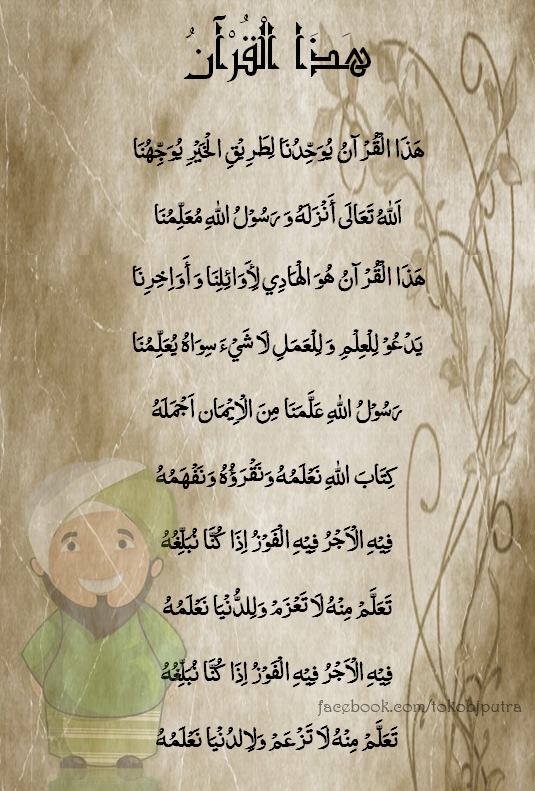 هَذَا الْقُرْآنُ
هَذَا الْقُرْآنُ يُوَحِّدُنَا لِطَرِيْقِ الْخَيْرِ يُوَجِّهُنَا
اَللهُ تَعَالَى أَنْزَلَهُ وَرَسُوْلُ اللهِ مُعَلِّمُنَا
هَذَا الْقُرْآنُ هُوَ الْهَادِي لِأَوَائِلِنَا وَأَوَاخِرِنَا
يَدْعُوْ لِلْعِلْمِ وَلِلْعَمَلِ لَا شَيْءَ سِوَاهُ يُعَلِّمُنَا
رَسُوْلُ اللهِ عَلَّمَنَا مِنَ الْاِيْمَان اَجْمَلَهُ
كِتَابَ اللهِ نَعْلَمُهُ وَنَقْرَؤُهُ وَنَفْهَمُهُ
فِيْهِ الْاَجْرُ فِيْهِ الْفَوْزُ اِذَا كُنَّا نُبَلِّغُهُ
تَعَلَّمْ مِنْهُ لَا تَعْزَمْ وَلِلدُّنْيَا نَعْلَمُهُ
فِيْهِ الْاَجْرُ فِيْهِ الْفَوْزُ اِذَا كُنَّا نُبَلِّغُهُ
facebook.com/tokohiputra
تَعَلَّمْ مِنْهُ لَا تَزْعَمْ وَلِالدُنْيَا نَعْلَمُهُ